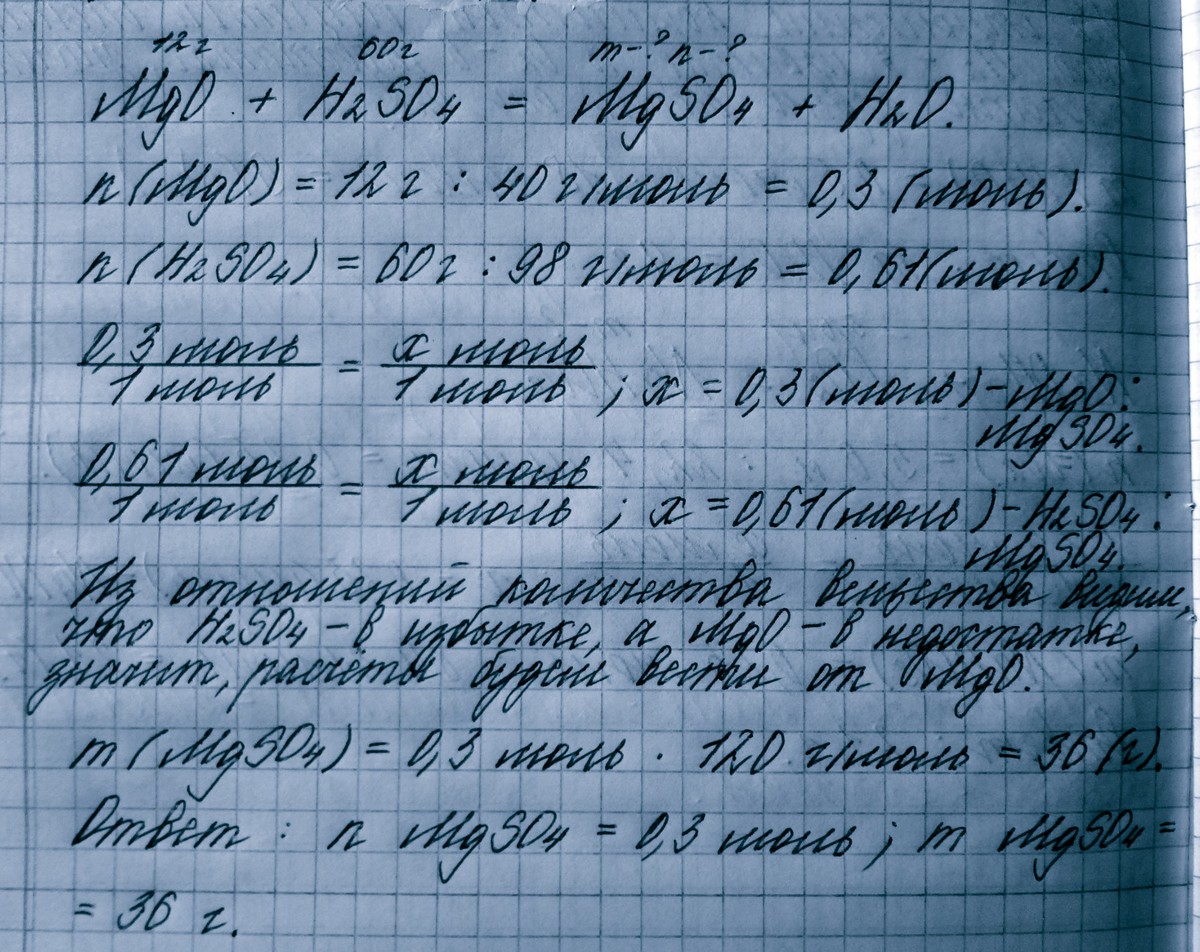 12г 60г m-? n-?
MgO + H₂SO₄ = MgSO₄ + H₂O.
n(MgO) = 12 г : 40 г/моль = 0,3 (моль).
n(H₂SO₄) = 60г : 98 г/моль = 0,61(моль).
0,3 моль / 1 моль = x моль / 1 моль ; x = 0,3(моль) - MgO :
MgSO₄.
0,61 моль / 1 моль = x моль / 1 моль ; x = 0,61(моль) - H₂SO₄ :
MgSO₄.
Из отношений количества вещества видим,
что H₂SO₄ - в избытке, а MgO - в недостатке,
значит, расчёты будем вести от MgO.
m(MgSO₄) = 0,3 моль · 120 г/моль = 36 (г).
Ответ : n MgSO₄ = 0,3 моль ; m MgSO₄ =
= 36 г.